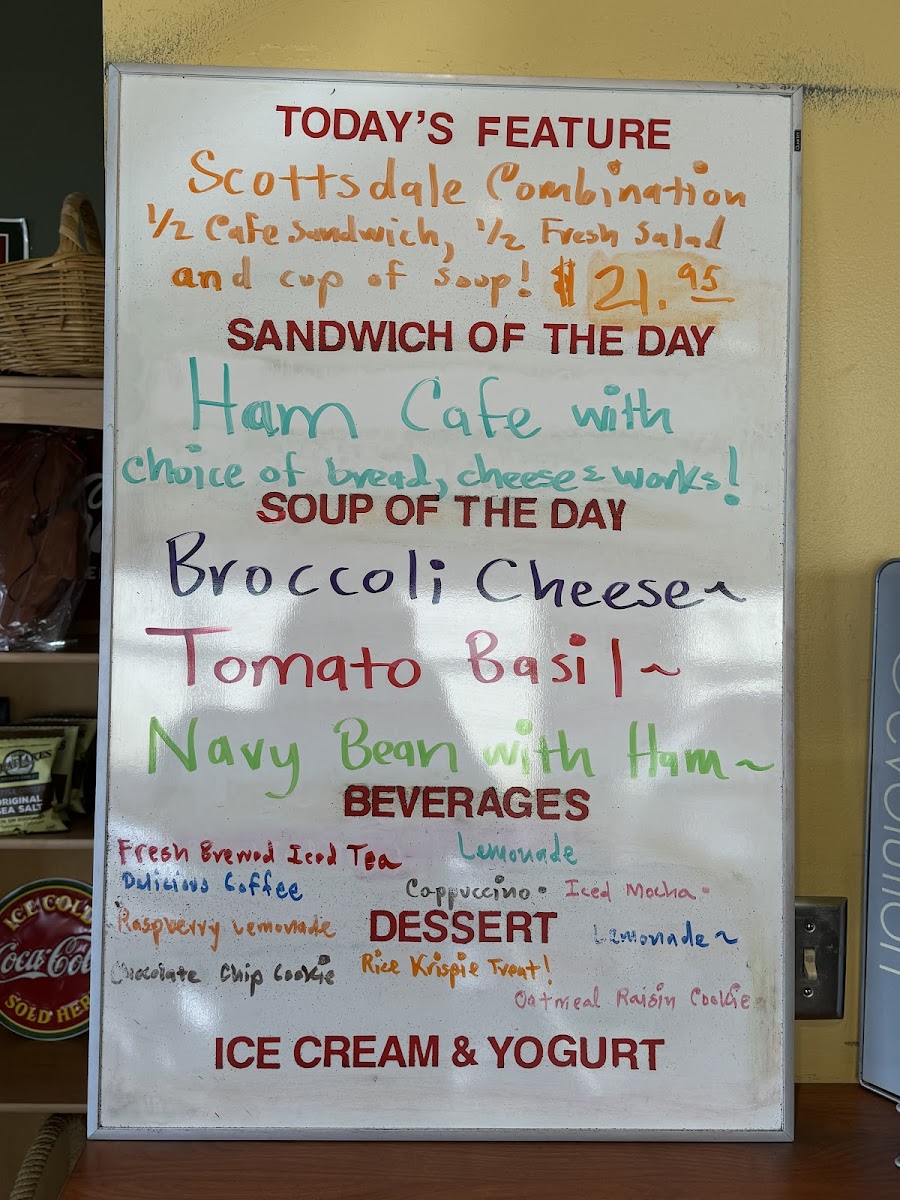 TODAY'S FEATURE
Scottsdale Combination
1/2 Cafe Sandwich, 1/2 Fresh Salad
and cup of soup! $21.95
SANDWICH OF THE DAY
Ham Cafe with
choice of bread, cheese & works!
SOUP OF THE DAY
Broccoli Cheese~
Tomato Basil~
Navy Bean with Ham~
BEVERAGES
Fresh Brewed Iced Tea Lemonade
Delicious Coffee Cappuccino• Iced Mocha•
Raspberry Lemonade DESSERT Lemonade~
Chocolate Chip Cookie Rice Krispie Treat!
Oatmeal Raisin Cookie•
ICE CREAM & YOGURT
ORIGINAL
SEA SALT
ICE COLD
Coca-Cola
SOLD HERE